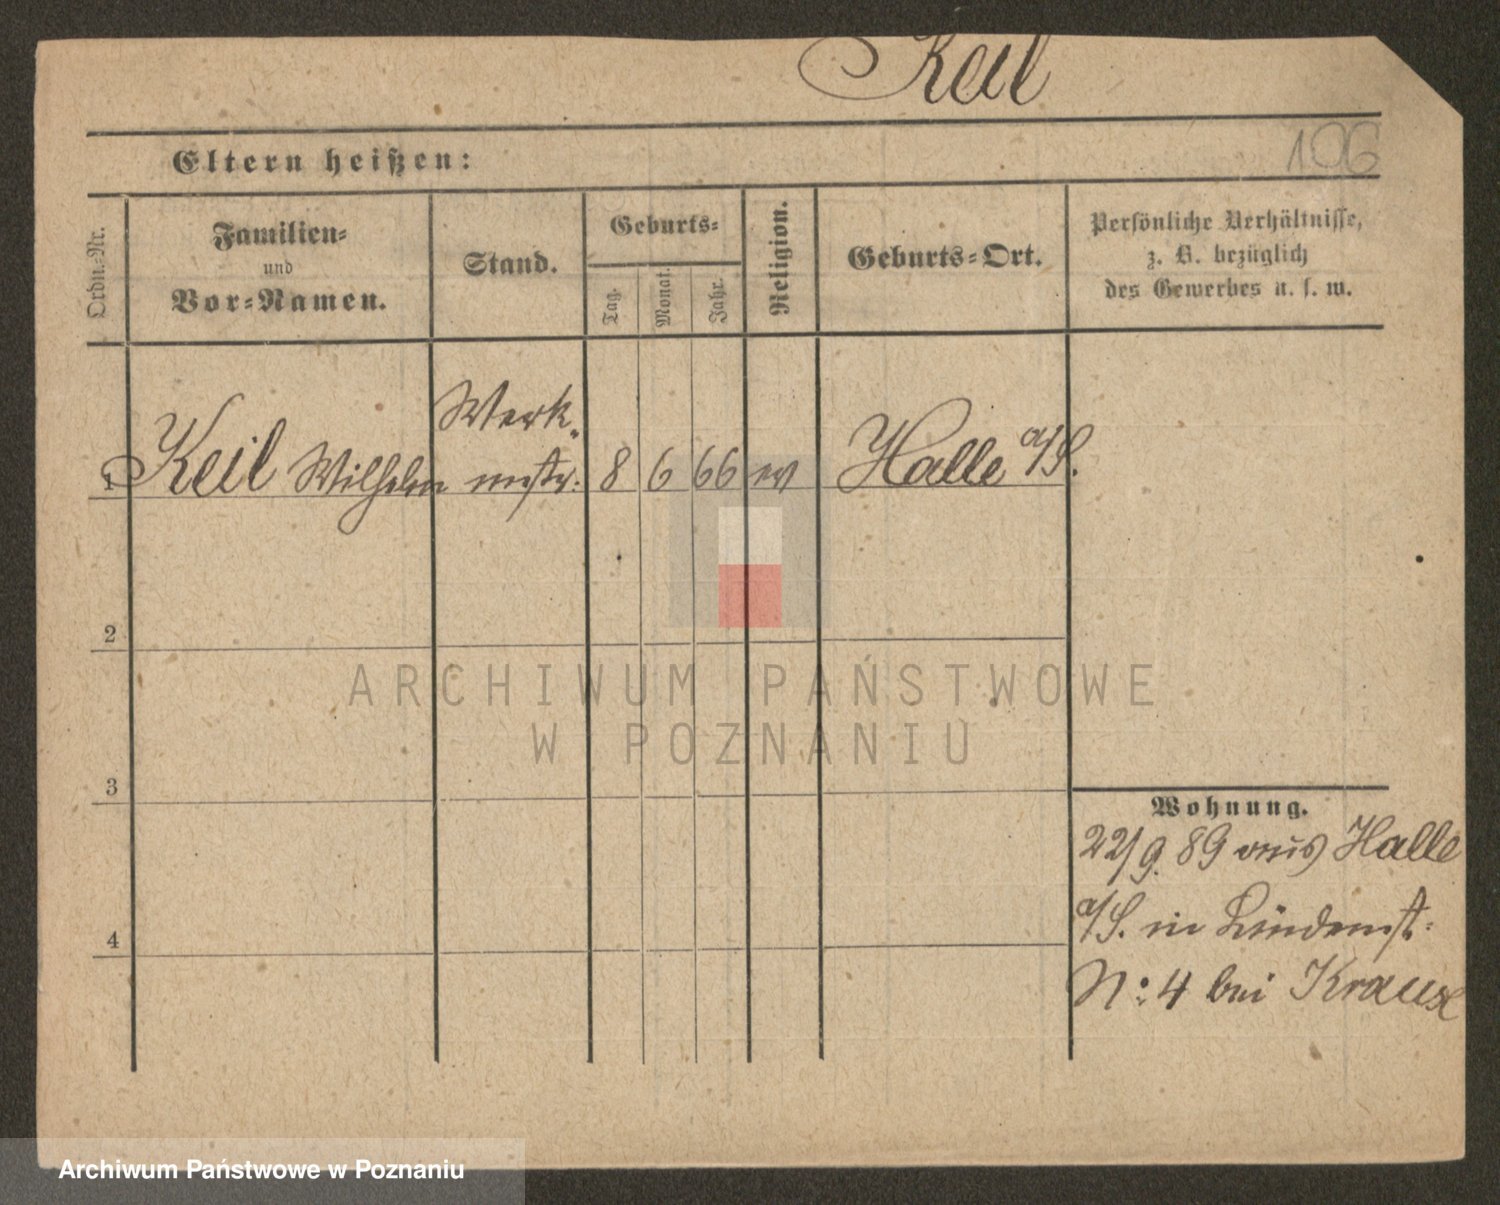 Keil
106
Eltern heißen:
Ordn.-Nr.
Familien-
und
Vor-Namen.
Stand.
Geburts-
Tag.
Monat.
Jahr.
Religion.
Geburts-Ort.
Persönliche Verhältnisse,
z. B. bezüglich
des Gewerbes u. s. w.
Werk-
1 Keil Wilhelm mstr: 8 6 66 ev Halle a/S.
2
3
4
Wohnung.
22/9. 89 aus Halle
a/S. in Lindenst:
N: 4 bei Krause
ARCHIWUM PAŃSTWOWE
W POZNANIU
Archiwum Państwowe w Poznaniu